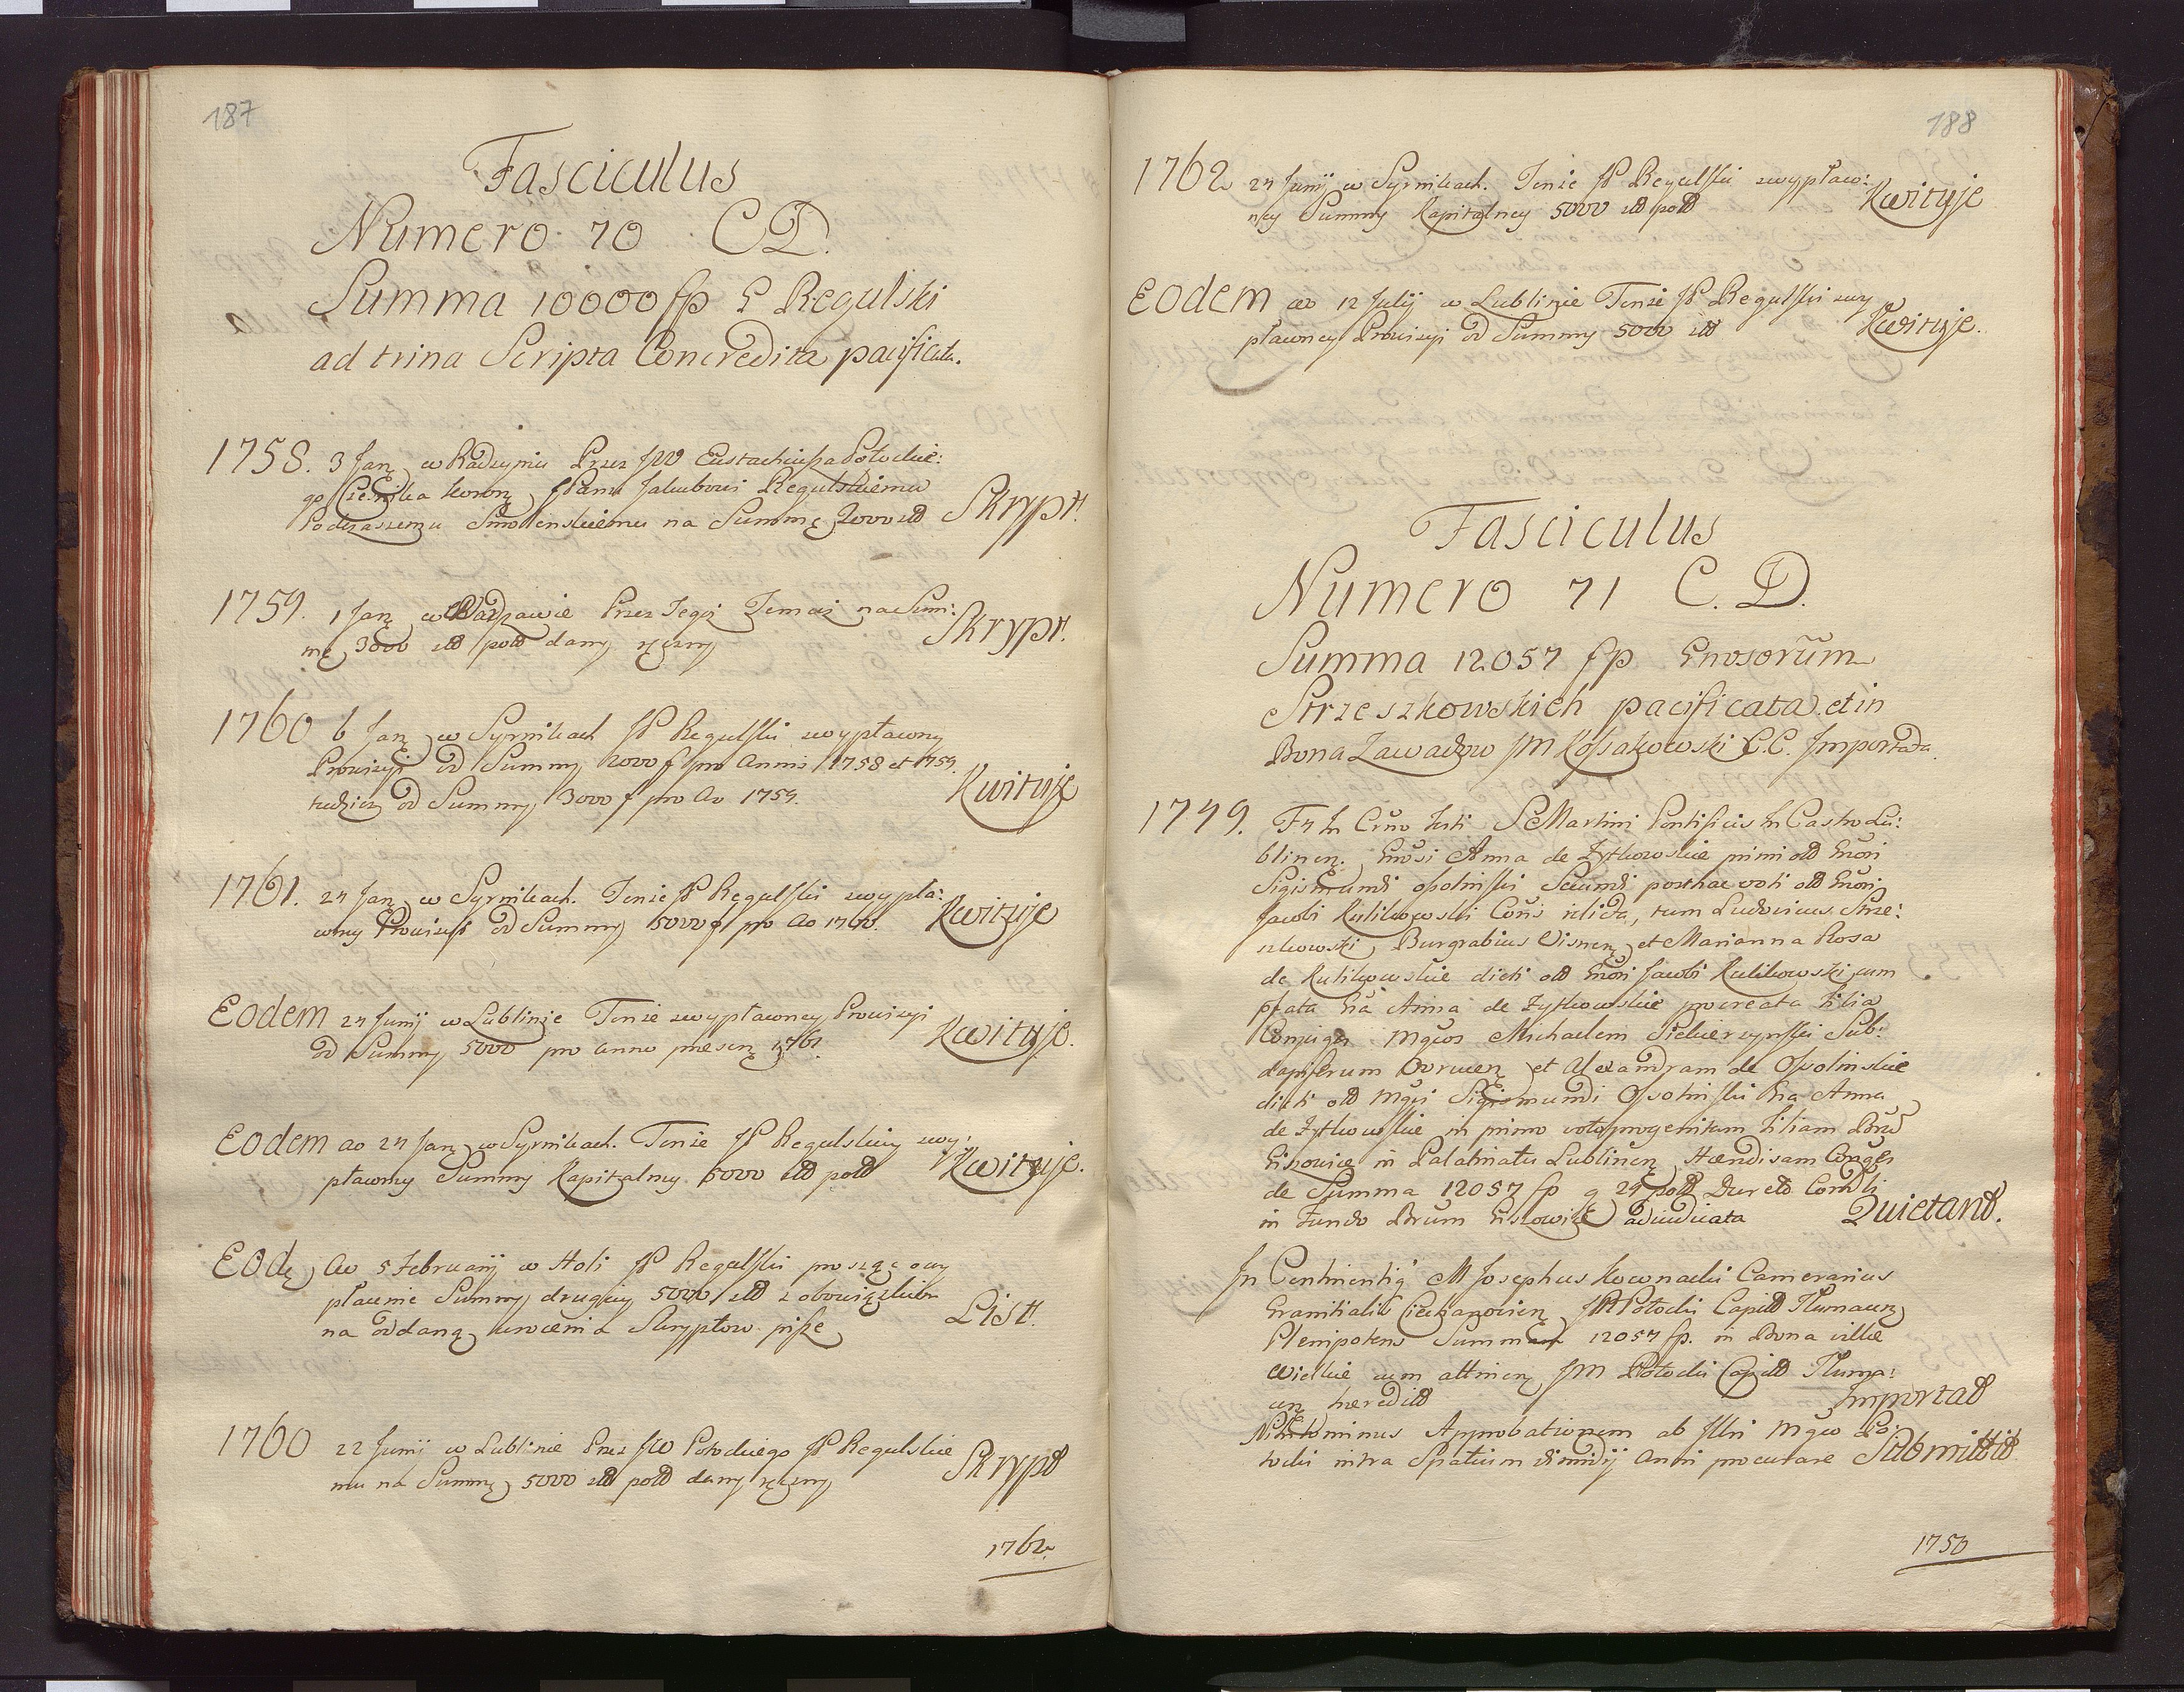 187
Fasciculus
Numero 70 C D.
Summa 10000 fp G Regulski
ad trina Scripta Concredita pacificata.
1758. 3 Jan w Radzyniu Przez JW Eustachiusza Potockie:
go Cześnika Koron JPanu Jakubowi Regulskiemu
Podczaszemu Smolenskiemu na Summę 2000 zł Skrypt.
1759. 1 Jan w Warszawie Przez Tegoż Temuż na Sum:
mę 3000 zł pol dany ręczny Skrypt.
1760 6 Jan w Syrnikach JP Regulski z wypławney
Prowizyi od Summy 2000 f pro Annis 1758 et 1759.
tudziesz od Summy 3000 f pro Ao 1759. Kwituje
1761. 24 Jan w Syrnikach. Tenże JP Regulski z wypła:
wney Prowizyi od Summy 5000 f pro Ao 1760. Kwituje
Eodem 24 Junij w Lublinie Tenże z wypławney Prowizyi
od Summy 5000 pro anno presen 1761. Kwituje.
Eodem ao 24 Jan w Syrnikach. Tenże JP Regulski z wy:
pławney Summy Kapitalney 5000 zł pol Kwituje.
Eode Ao 5 Februarij w Holi JP Regulski prosząc o wy
płacenie Summy drugiey 5000 zł z obowiązkiem
na oddaną wrocenia Skryptow pisze List.
1760 22 Junij w Lublinie Przez JW Potockiego JP Regulskie
mu na Summę 5000 zł pol dany ręczny Skrypt
1762.
188
1762 24 Junij w Syrnikach. Tenże JP Regulski z wypław:
ney Summy Kapitalney 5000 zł pol Kwituje
Eodem ao 12 Julij w Lublinie Tenże JP Regulski z wy
pławney Prowizyi od Summy 5000 zł Kwituje.
Fasciculus
Numero 71 C. D.
Summa 12057 fp Gnosorum
Strzeszkowskich pacificata et in
Bona Zawadow JM Kossakowski C.C. Importata.
1749. F 4 In Crno festi S Martini Pontificis In Castro Lu:
blinen. Gnosi Anna de Zytkowskie primi olim Gnosi
Sigismundi Ossolinski Secundi posthac voti olim Gnosi
Jacobi Kulikowski Cons relicta, tum Ludovicus Strze:
szkowski Burgrabius Visnen et Marianna Rosa
de Kulikowskie dicti olim Gnosi Jacobi Kulikowski cum
pfata Gna Anna de Zytkowskie procreata filia
Conjuges Mgcos Michaelem Siekierzynski Sub:
dapiferum Owrucen et Alexandram de Ossolinskie
dicti olim Mgci Sigismundi Ossolinski Gna Anna
de Zytkowskie in primo voto progenitam filiam Bnr
in Palatinatu Lublinen Haeredisam Conges
de Summa 12057 fp g 24 pol Decreto Comli
in Fundo Bnrum adiudicata Quietant.
In Continenti M Josephus Kownacki Camerarius
Granitialis Ciechanovien JM Potocki Capit Tlumacen
Plenipotens Summam 12057 fp. in Bona villae
Wielkie cum attinen JM Potocki Capit Tluma:
cen heredit Importat
Nihilominus Approbationem ab Illri Mgco Po
tocki intra Spatium dimidij Anni procurare Submittit
1750